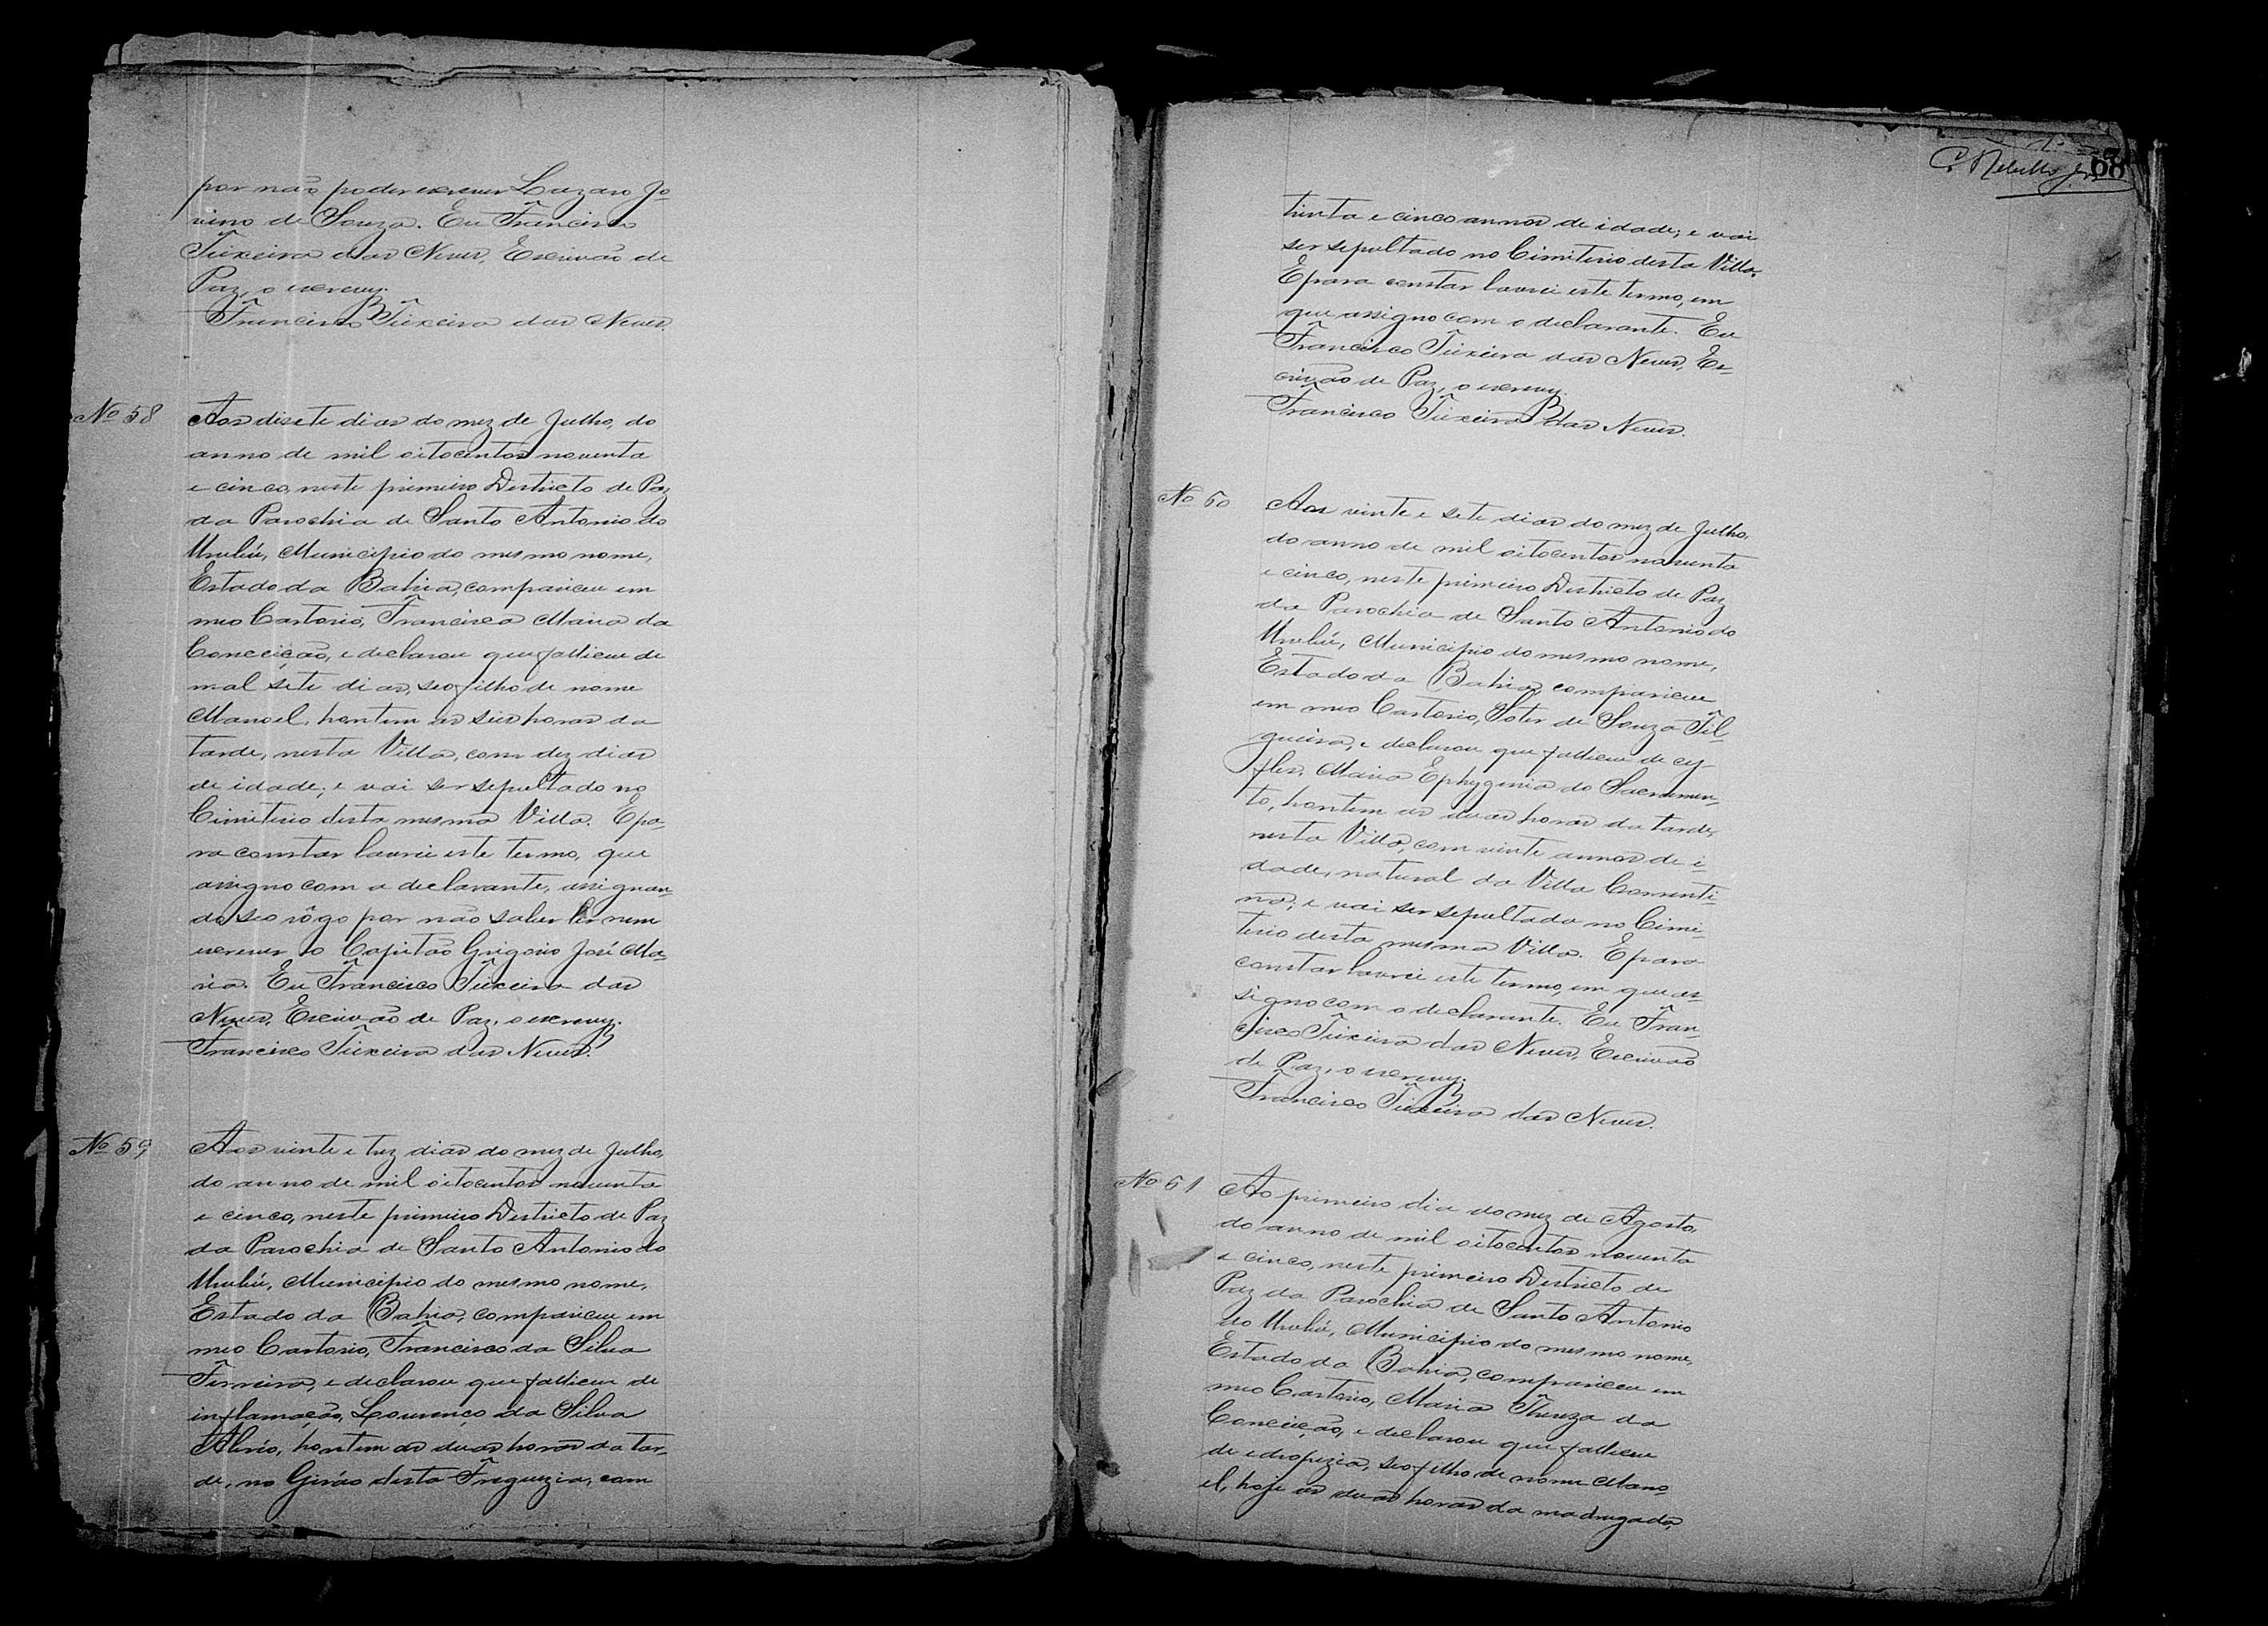 por não poder escrever Lazaro Jo-
vino de Souza. Eu Francisco
Teixeira das Neves, Escrivão de
Paz, o escrevy.
Francisco Teixeira das Neves.
Nº 58
Aos desete dias do mez de Julho, do
anno de mil oitocentos noventa
e cinco, neste primeiro Destricto de Paz
da Parochia de Santo Antonio do
Urubú, Municipio do mesmo nome,
Estado da Bahia, compareceu em
meo Cartorio, Francisca Maria da
Conceição, e declarou que falleceu de
mal sete dias, seo filho de nome
Manoel, hontem as seis horas da
tarde, nesta Villa, com dez dias
de idade; e vai ser sepultado no
Cimiterio desta mesma Villa. E pa-
ra constar lavrei este termo, que
assigno com a declarante, assignan-
do seo rôgo por não saber ler nem
escrever o Capitão Grigorio José Ma-
ria. Eu Francisco Teixeira das
Neves, Escrivão de Paz, o escrevy.
Francisco Teixeira das Neves.
Nº 59
Aos vinte e trez dias do mez de Julho,
do anno de mil oitocentos noventa
e cinco, neste primeiro Destricto de Paz
da Parochia de Santo Antonio do
Urubú, Municipio do mesmo nome,
Estado da Bahia, compareceu em
meo Cartorio, Francisco da Silva
Ferreira, e declarou que falleceu de
inflamação, Lourenço da Silva
hontem as duas horas da tar-
de, no Giráo desta Freguezia, com
68
trinta e cinco annos de idade; e vai
ser sepultado no Cimiterio desta Villa.
E para constar lavrei este termo, em
que assigno com o declarante. Eu
Francisco Teixeira das Neves, Es-
crivão de Paz, o escrevy.
Francisco Teixeira das Neves.
Nº 60
Aos vinte e sete dias do mez de Julho,
do anno de mil oitocentos noventa
e cinco, neste primeiro Destricto de Paz
da Parochia de Santo Antonio do
Urubú, Municipio do mesmo nome,
Estado da Bahia, compareceu
em meo Cartorio, Soter de Souza Fil-
gueira, e declarou que falleceu de
Maria Ephygenia do Sacramen-
to, hontem as duas horas da tarde,
nesta Villa, com vinte annos de i-
dade, natural da Villa
e vai ser sepultada no Cimi-
terio desta mesma Villa. E para
constar lavrei este termo, em que as-
signo com o declarante. Eu Fran-
cisco Teixeira das Neves, Escrivão
de Paz, o escrevy.
Francisco Teixeira das Neves.
Nº 61
Ao primeiro dia do mez de Agosto,
do anno de mil oitocentos noventa
e cinco, neste primeiro Destricto de
Paz da Parochia de Santo Antonio
do Urubú, Municipio do mesmo nome,
Estado da Bahia, compareceu em
meo Cartorio, Maria Thereza da
Conceição, e declarou que falleceu
de edropezia, seo filho de nome Mano-
el, hoje as duas horas da madrugada,